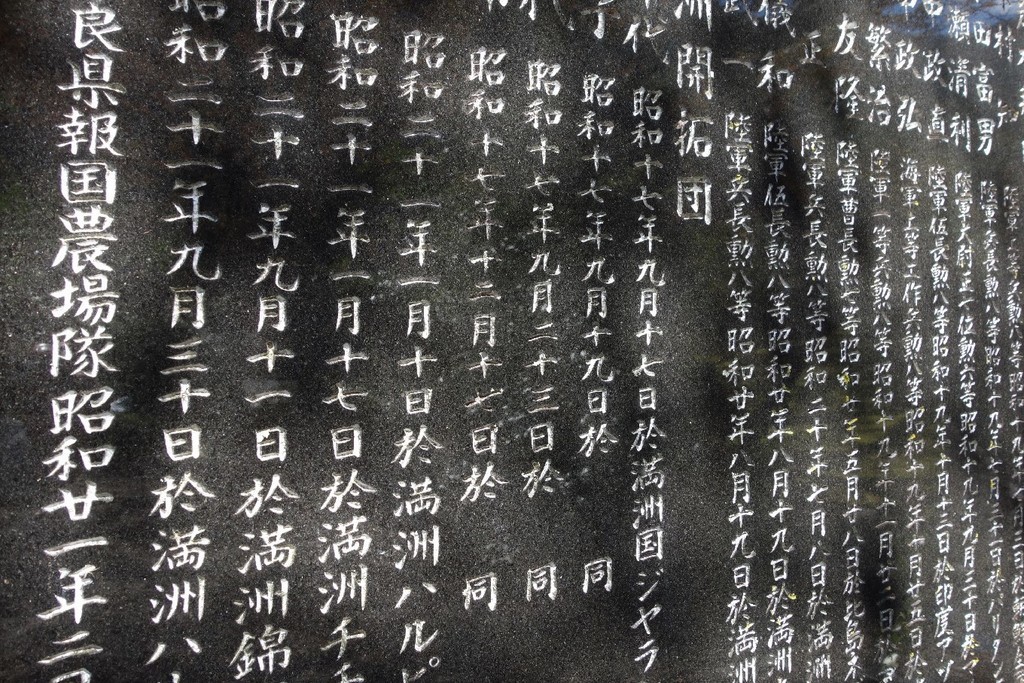 陸軍兵長勲八等昭和十九年
田富男 陸軍兵長勲八等昭和十九年七月三十日於バリタン
瀬清利 陸軍大尉正一位勲六等昭和十九年九月三十日於
政直 陸軍伍長勲八等昭和十九年十月十三日於印度アッ
政弘 海軍上等工作兵勲八等昭和十九年十月廿五日於
繁治 陸軍一等兵勲八等昭和十九年十一月廿二日於
友隆 陸軍曹長勲七等昭和二十年五月廿八日於比島
正 陸軍兵長勲八等昭和二十年七月八日於満洲
儀和 陸軍伍長勲八等昭和廿年八月十九日於満洲
武一 陸軍兵長勲八等昭和廿年八月十九日於満洲
洲開拓団
代 昭和十七年九月十七日於満洲国ジヤラ
子 昭和十七年九月十九日於 同
昭和十七年九月二十三日於 同
昭和十七年十二月十七日於 同
昭和二十一年一月十日於満洲ハルピ
昭和二十一年一月十七日於満洲チチ
昭和二十一年九月十一日於満洲錦
昭和二十一年九月三十日於満洲ハ
良県報国農場隊昭和廿一年二